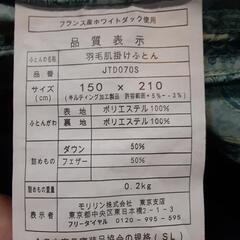 フランス産ホワイトダック使用
品質表示
ふとんの名称 羽毛肌掛けふとん
品番 JTD070S
サイズ(cm) 150 × 210
(キルティング加工製品 許容範囲+5%~-3%)
ふとんがわ 表地 ポリエステル100%
裏地 ポリエステル100%
詰めもの ダウン 50%
フェザー 50%
詰めもの重量 0.2kg
表示者 モリリン株式会社 東京支店
東京都中央区東日本橋2-1-3
フリーダイヤル 0120-995-595
協会の規格(SL)